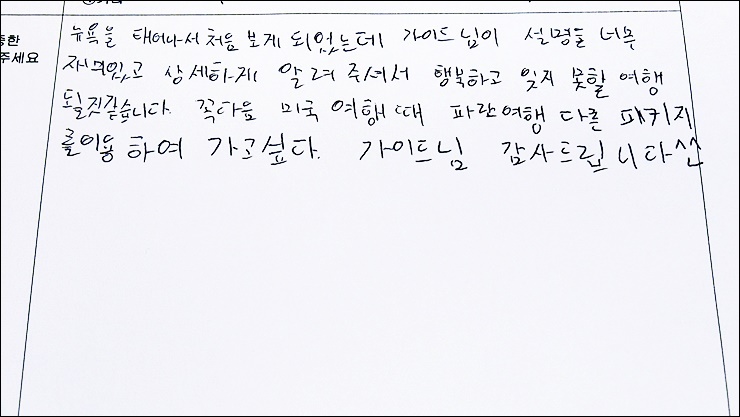 중한
주세요
뉴욕을 태어나서 처음 보게 되었는데 가이드님이 설명을 너무
재미있고 상세하게 알려주셔서 행복하고 잊지 못할 여행
될것같습니다. 꼭다음 미국 여행때 파란여행 다른 패키지
를이용하여 가고싶다. 가이드님 감사드립니다^^